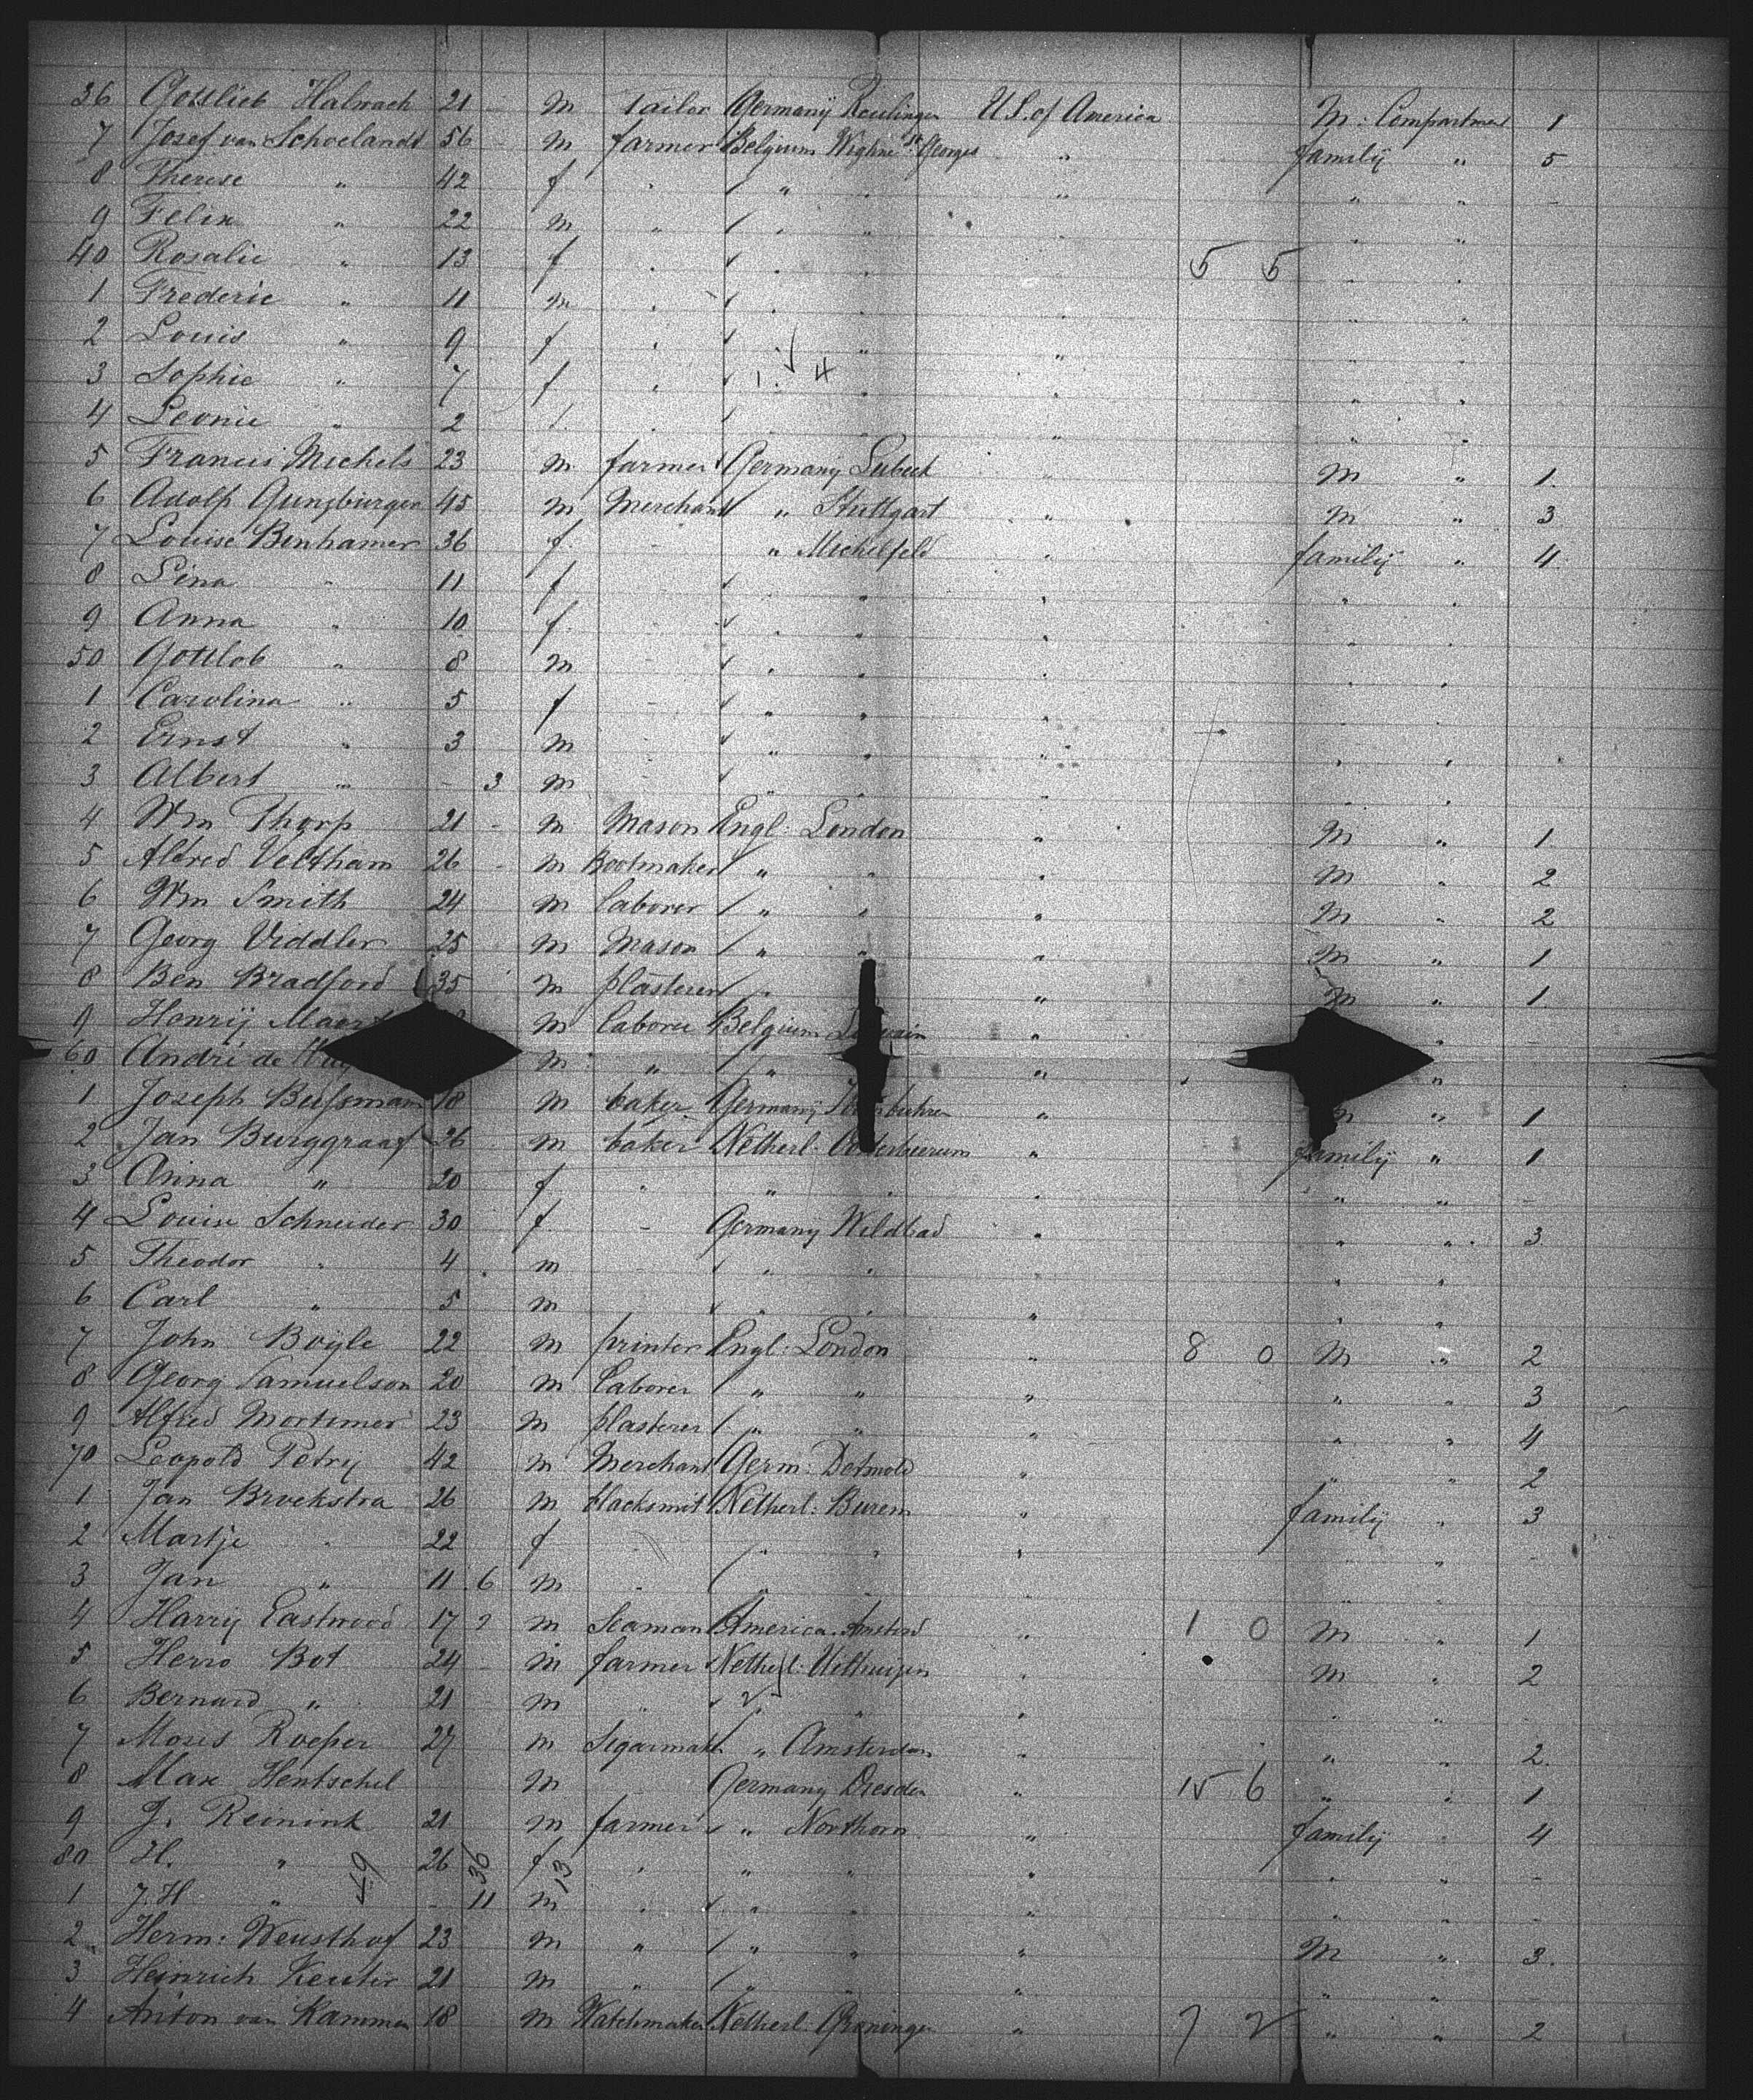 36 Gottlieb Halwach 21 - m tailor Germany Reutlingen U.S. of America M: Compartment 1
7 Josef van Schoelandt 56 - m farmer Belgium St. Georges " family " 5
8 Therese " 42 f " " " " " "
9 Felix " 22 m " " " " " "
40 Rosalie " 13 f " " " " 5 5 " "
1 Frederic " 11 m " " " " " "
2 Louis " 9 f " " " " " "
3 Sophie " 7 f " 1 4 " " " "
4 Leonie " 2 f " " " " " "
5 Francis Michels 23 m farmer Germany Lubeck " M " 1
6 Adolf Gunzburger 45 m Merchant " Stuttgart " M " 3
7 Louise Benhamer 36 f - " Michelfeld " family " 4
8 Lina " 11 f " " " " "
9 Anna " 10 f - " " " " "
50 Gottlob " 8 m - " " " " "
1 Carolina " 5 f - " " " " "
2 Ernst " 3 m - " " " " "
3 Albert " - 3 m - " " " " "
4 Wm Thorp 21 - m Mason Engl: London " M " 1
5 Aldred Veltham 26 - m Bootmaker " " " M " 2
6 Wm Smith 24 m laborer " " " M " 2
7 Georg Viddler 25 m Mason " " " M " 1
8 Ben Bradford 35 m plasterer " " M " 1
9 Henrij m laborer Belgium " "
60 André de m " " " "
1 Joseph Bussmann 18 m baker Germany " m " 1
2 Jan Burggraaf 26 m baker Netherl: " family " 1
3 Anna " 20 f " " " " " " -
4 Louise Schneider 30 f - Germany Wildbad " " " 3
5 Theodor " 4 m - " " " " "
6 Carl " 5 m " " " " "
7 John Boyle 22 m printer Engl: London " 8 0 M " 2
8 Georg Samuelson 20 m laborer " " " " " 3
9 Alfred Mortimer 23 m plasterer " " " " " 4
70 Leopold Petrij 42 m Merchant Germ: Detmold " " " 2
1 Jan Broekstra 26 m blacksmit Netherl: Burem " family " 3
2 Martje " 22 f " " " " " " -
3 Jan " 11 6 m " " " " "
4 Harrij Eastwood 17 m Seaman America " 1 0 M " 1
5 Herro Bot 24 - m farmer Netherl: Uithuizen " M " 2
6 Bernard " 21 - m " " " " " " -
7 Moses Roeper 27 m Segarmak " Amsterdam " " " 2
8 Max Hentschel m Germany Dresden " 15 6 " " 1
9 J. Reinink 21 m farmer " Northorn " family " 4
80 H. " 49 26 36 f 13 " " " " " " -
1 J. H " - 11 m " " " " " " -
2 Herm: Weusthof 23 m " " " " M " 3
3 Heinrich Keuter 21 m " " " " " " -
4 Anton van Kammen 18 m Watchmaker Netherl. Groningen " 7 2 " " 2